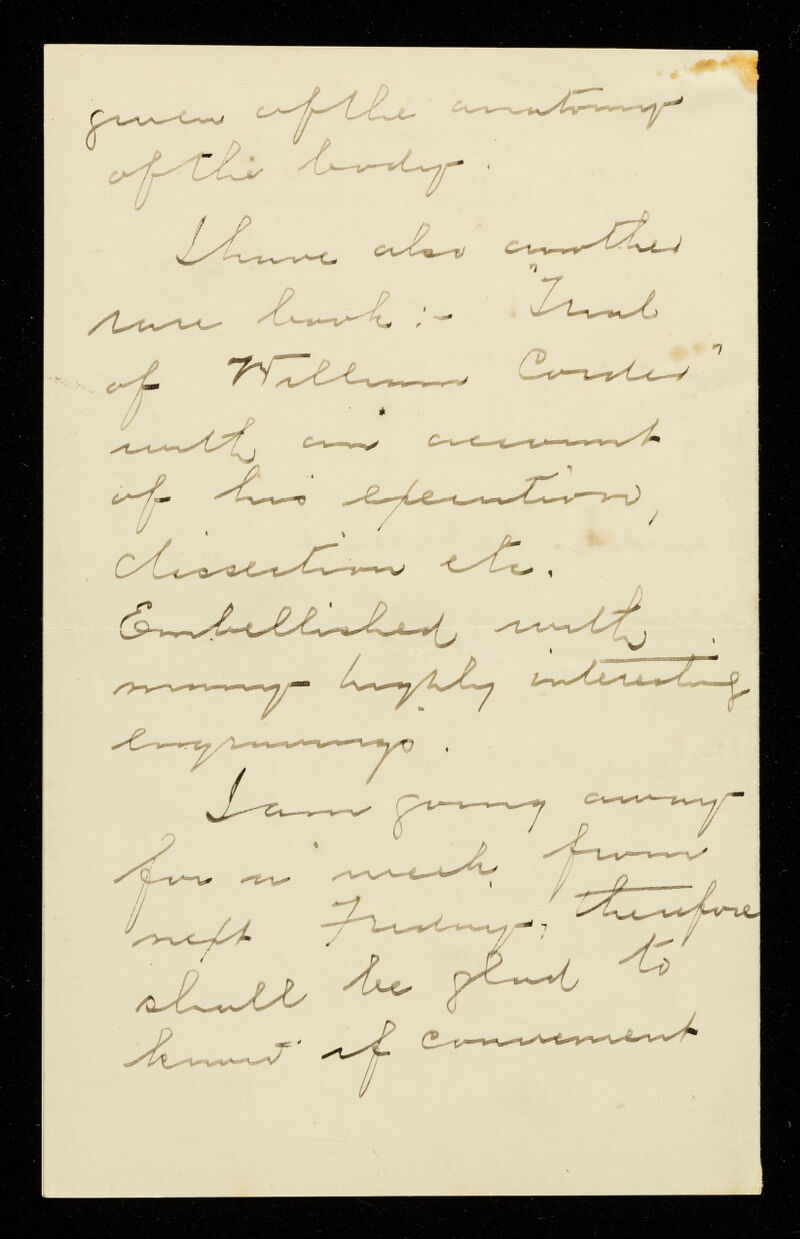 given of the anatomy
of the body.
I have also another
rare book :- "Trial
of William Corder"
with an account
of his execution,
dissection etc.
Embellished with
many highly interesting
engravings.
I am going away
for a week from
next Friday, therefore
shall be glad to
know if convenient